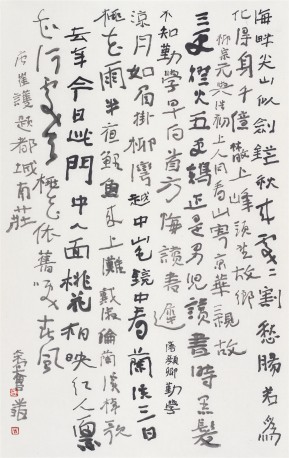 海畔尖山似劍鋩秋來處〻割愁腸若為
化得身千億散上峰頭望故鄉
柳宗元與浩初上人同看山寄京華親故
三更燈火五更鷄正是男兒讀書時黑髮
不知勤學早白首方悔讀書遲 顏真卿勸學
涼月如眉掛柳灣越中山色鏡中看蘭溪三日
桃花雨半夜鯉魚來上灘 戴叔倫蘭溪棹歌
去年今日此門中人面桃花相映紅人面
不知何處去桃花依舊笑春風
崔護題都城南莊